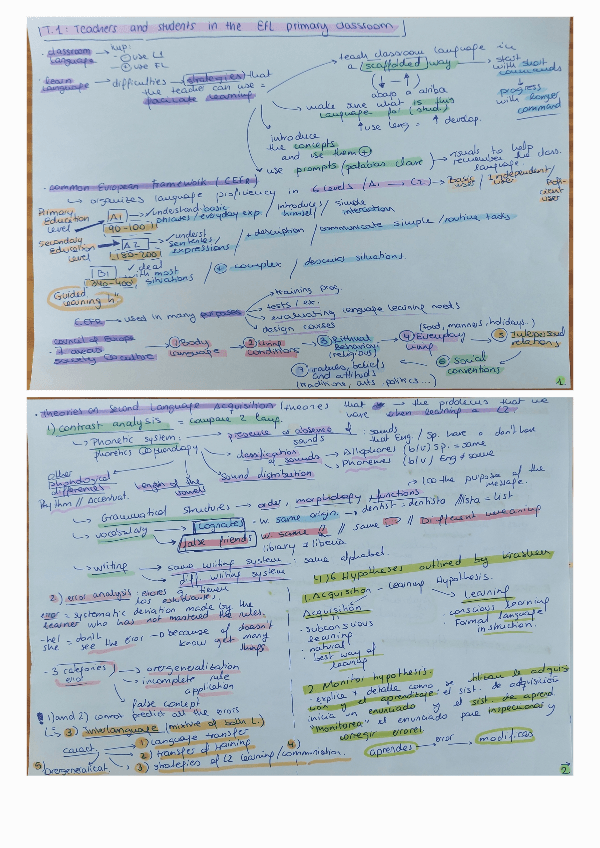 T.1: Teachers and students in the EFL primary classroom
· classroom language → tup:
- ⊖ use L1
- ⊕ use FL
· learn language → difficulties → strategies that the teacher can use = facilitate learning
teach classroom language in a scaffolded way
(abajo a arriba)
→ start with short commands
progress with longer command
make sure what is this language for (stud.)
↑ use lang = ↑ develop.
introduce the concepts and use them ⊕
use prompts / palabras clave → visuals to help remember the class. language
· Common European framework (CEFR)
↳ organizes language proficiency in 6 levels (A1 → C2) → Basic user / Independent user / Proficient user
Primary Education level → A1 → understand basic phrases / everyday exp. / introduce himself / simple interaction
90-100 h
Secondary Education level → A2 → underst sentences / expressions / + description / communicate simple / routine tasks
180-200
B1 → deal with most situations / ⊕ complex / describe situations.
"Guided learning h"
CEFR → used in many purposes
training prog.
tests / ex.
evaluating language learning needs
design courses
Council of Europe
7 areas
① Body language → ② living conditions → ③ Ritual Behaviour (religious) → ④ Everyday living (food, manners, holidays...) → ⑤ Interpersonal relations
⑥ Social conventions
⑦ values, beliefs and attitudes (traditions, arts, politics...)
1.
· Theories on Second Language Acquisition / theories that → the problems that we have when learning a L2
1) contrast analysis = compare 2 lang.
↳ Phonetic system: phonetics phonology
→ presence or absence of sounds : sounds that Eng / Sp. have o don't have
classification of sounds → Allophones (b/v) Sp = same
→ Phonemes (b/v) Eng ≠ same
sound distribution
length of the vowel
other phonological differences
Rhythm // Accentuat.
↳ Grammatical structures → order, morphology, functions
↳ vocabulary → cognates · w same origin. → dentist = dentista // lista = list
false friends w same // same // Different meaning
library ≠ libreria
↳ writing → same writing system : same alphabet.
diff writing system
2) error analysis : errores q tienen los estudiantes.
error = systematic deviation made by the learner who has not mastered the rules.
- he/she = don't see the error → because of doesn't know yet many things
- 3 categories error
→ overgeneralization
→ incomplete rule application
false concept
1) and 2) cannot predict all the errors
3) Interlanguage (mixture of both L.)
1) language transfer
2) transfer of training
3) strategies of L2 learning / communication.
5 overgeneralizat.
4)
4) 6 Hypotheses outlined by Krashen
1. Acquisition - Learning Hypothesis.
Acquisition
· subconscious learning
· natural
· best way of learning
Learning
· conscious learning
· Formal language instruction.
2. Monitor hypothesis.
- explica + detalle como se
y el aprendizaje. el sist. de adquisición inicia un enunciado y el sist de aprend "Monitorea" el enunciado para inspeccionar y corregir errores.
aprendes → error → modificas
2